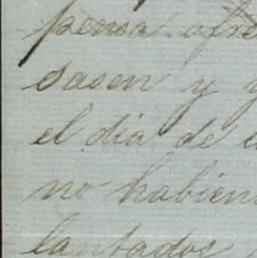 pensa
sasen y
el dia de
no habien
lantados